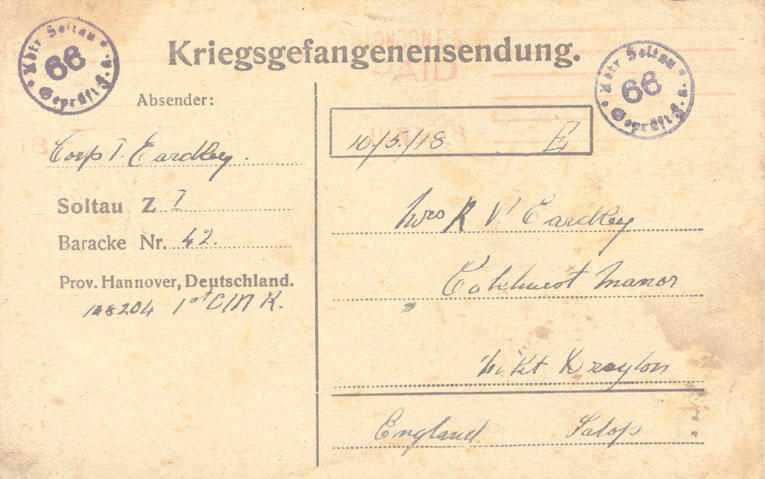 Kriegsgefangenensendung.
Abtr Soltau 66 Geprüft F. a.
Abtr Soltau 66 Geprüft F. a.
PAID
Absender:
Corp T. Eardley.
Soltau Z I
Baracke Nr. 42.
Prov. Hannover, Deutschland.
1st C M R.
10/5/18 E
Mrs R V Eardley
Manor
Mkt Drayton
England Salop